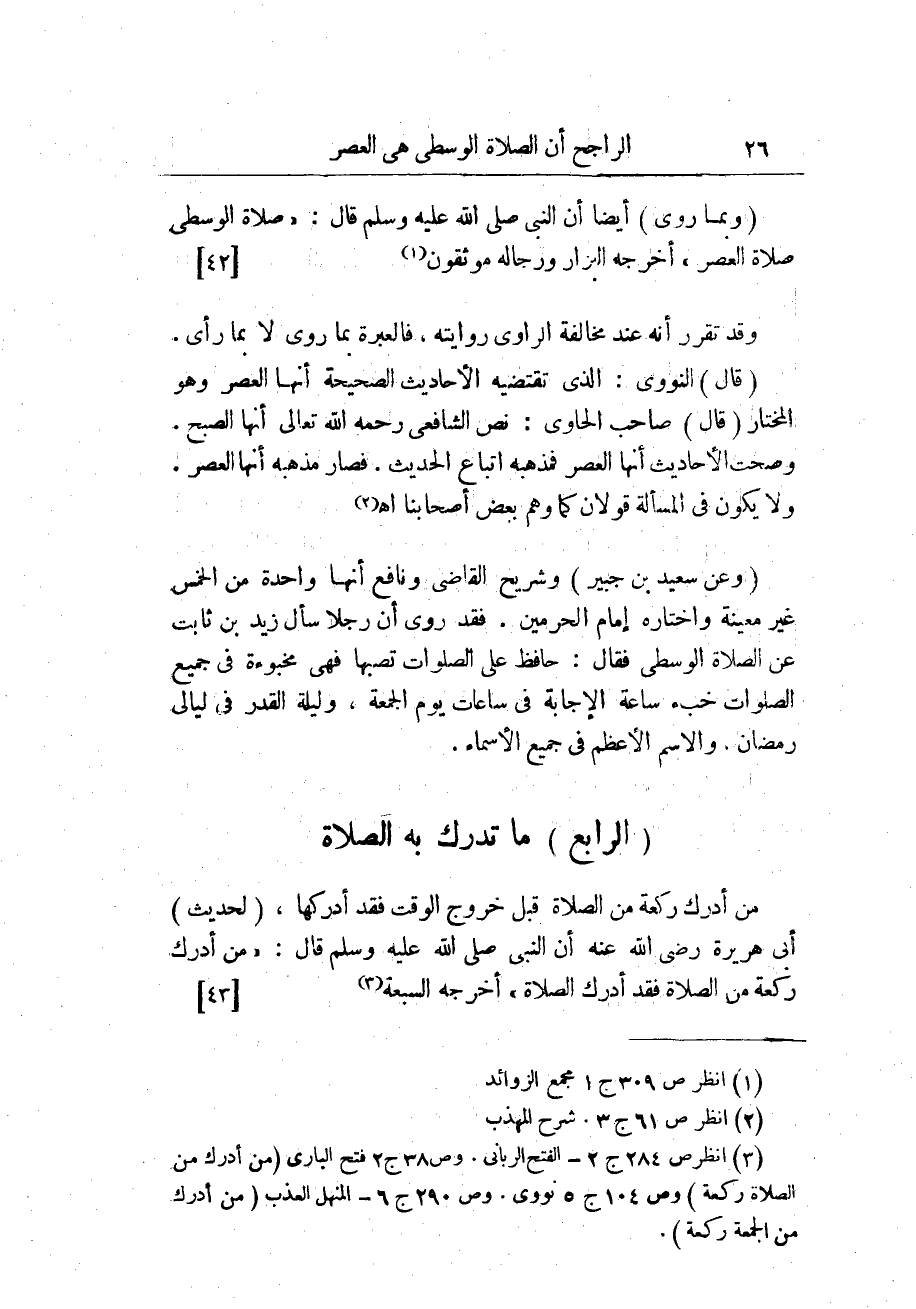 ٢٦ الراجح أن الصلاة الوسطى هى العصر
( وبمـا روى ) أيضا أن النبى صلى الله عليه وسلم قال : « صلاة الوسطى
صلاة العصر » أخرجه البزار ورجاله موثقون(١) [٤٢]
وقد تقرر أنه عند مخالفة الراوى روايته ، فالعبرة بما روى لا بما رأى .
( قال ) النووى : الذى تقتضيه الأحاديث الصحيحة أنهـا العصر وهو
المختار ( قال ) صاحب الحاوى : نص الشافعى رحمه الله تعالى أنها الصبح .
وصحت الأحاديث أنها العصر فمذهبه اتباع الحديث . فصار مذهبه أنها العصر .
ولا يكون فى المسألة قولان كما وهم بعض أصحابنا اه(٢)
( وعن سعيد بن جبير ) وشريح القاضى ونافع أنهـا واحدة من الخمس
غير معينة واختاره إمام الحرمين . فقد روى أن رجلا سأل زيد بن ثابت
عن الصلاة الوسطى فقال : حافظ على الصلوات تصبها فهى مخبوءة فى جميع
الصلوات خبء ساعة الإجابة فى ساعات يوم الجمعة ، وليلة القدر فى ليالى
رمضان . والاسم الأعظم فى جميع الأسماء .
( الرابع ) ما تدرك به الصلاة
من أدرك ركعة من الصلاة قبل خروج الوقت فقد أدركها ، ( لحديث )
أبى هريرة رضى الله عنه أن النبى صلى الله عليه وسلم قال : « من أدرك
ركعة من الصلاة فقد أدرك الصلاة » أخرجه السبعة(٣) [٤٣]
(١) انظر ص ٣٠٩ ج ١ مجمع الزوائد
(٢) انظر ص ٦١ ج ٣ . شرح المهذب
(٣) انظر ص ٢٨٤ ج ٢ – الفتح الربانى . وص ٣٨ ج ٢ فتح البارى (من أدرك من
الصلاة ركعة ) وص ١٠٤ ج ٥ نووى . وص ٢٩٠ ج ٦ – المنهل العذب ( من أدرك
من الجمعة ركعة ) .